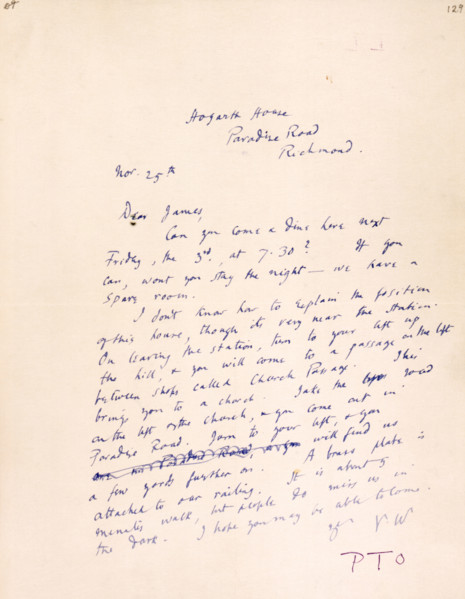 129
Hogarth House
Paradise Road
Richmond.
Nov. 25th
Dear James,
Can you come & dine here next
Friday, the 3rd, at 7.30? If you
can, wont you stay the night — we have a
spare room.
I don't know how to explain the position
of this house, though its very near the station.
On leaving the station, turn to your left up
the hill, & you will come to a passage on the left
between shops called Church Passage. This
brings you to a church. Take the road
on the left of the church, & you come out in
Paradise Road. Turn to your left, & you
will find us
a few yards further on. A brass plate is
attached to our railing. It is about 5
minutes walk, but people do miss us in
the dark. I hope you may be able to come.
yrs V.W
PTO